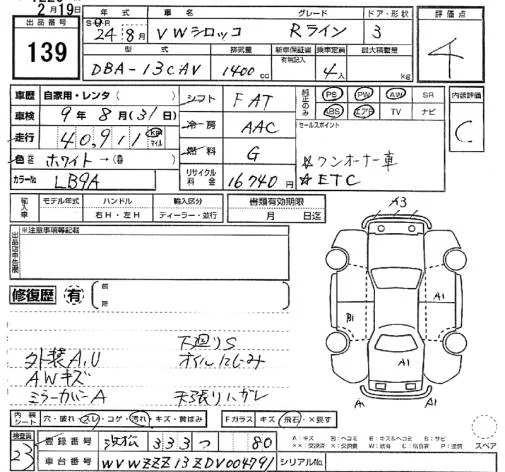 2月19日
出品番号 139
年式 車名 グレード ドア・形状
24年8月 VWシロッコ Rライン 3
型式 排気量 新車保証書 乗車定員 最大積載量
有無記入
DBA-13CAV 1400cc 4人 kg
評価点
4
車歴 自家用・レンタ( )
車検 9年8月(31)日
走行 40,911
色 ホワイト→( )
カラーNo LB9A
シフト FAT
冷房 AAC
燃料 G
リサイクル料金 16740円
純正のみ PS PW AW SR
ABS エアB TV ナビ
セールスポイント
☆ワンオーナー車
☆ETC
内装評価
C
輸入車 モデル年式 ハンドル 輸入区分
右H・左H ディーラー・並行
書類有効期限
月 日迄
出品店申告欄 ※注意事項等記載
修復歴 有
下廻りS
外装A,U オイルにじみ
AWキズ
ミラーカバーA 天張りハガレ
A3
A1
B1
A1
A1
A1
内装シート 穴・破れ・スレ・コゲ・汚れ・キズ・黄ばみ Fガラス キズ・飛石・×要す
スペア
検査員 23
登録番号 浜松 333 つ 80
A:キズ U:ヘコミ B:キズ&ヘコミ
車台番号 WVWZZZ13ZDV004791 シリアルNo.